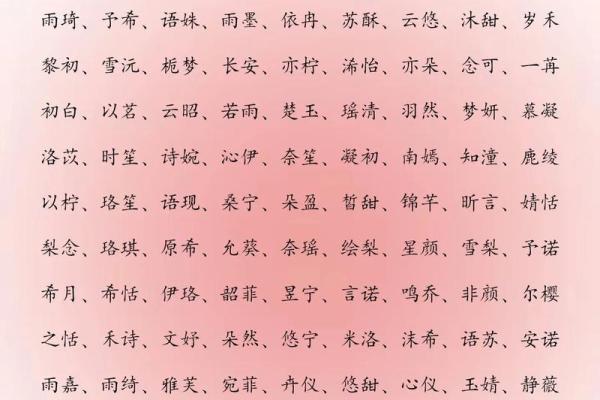 雨琦、予希、语姝、雨墨、依冉、苏酥、云悠、沐甜、岁禾
黎初、雪沅、栀梦、长安、亦柠、浠怡、亦朵、念可、一苒
初白、以茗、云昭、若雨、楚玉、瑶清、羽然、梦妍、慕凝
洛苡、时笙、诗婉、沁伊、奈笙、凝初、南嫣、知潼、鹿绫
以柠、珞笙、语现、桑宁、朵盈、皙甜、锦芊、昕言、婧恬
梨念、珞琪、原希、允葵、奈瑶、绘梨、星颜、雪梨、予诺
希月、希恬、伊珞、韶菲、昱宁、言诺、鸣乔、非颜、尔樱
之恬、禾诗、文妤、朵然、悠宁、米洛、沫希、语苏、安诺
雨嘉、雨绮、雅芙、宛菲、卉仪、悠甜、心仪、玉婧、静薇